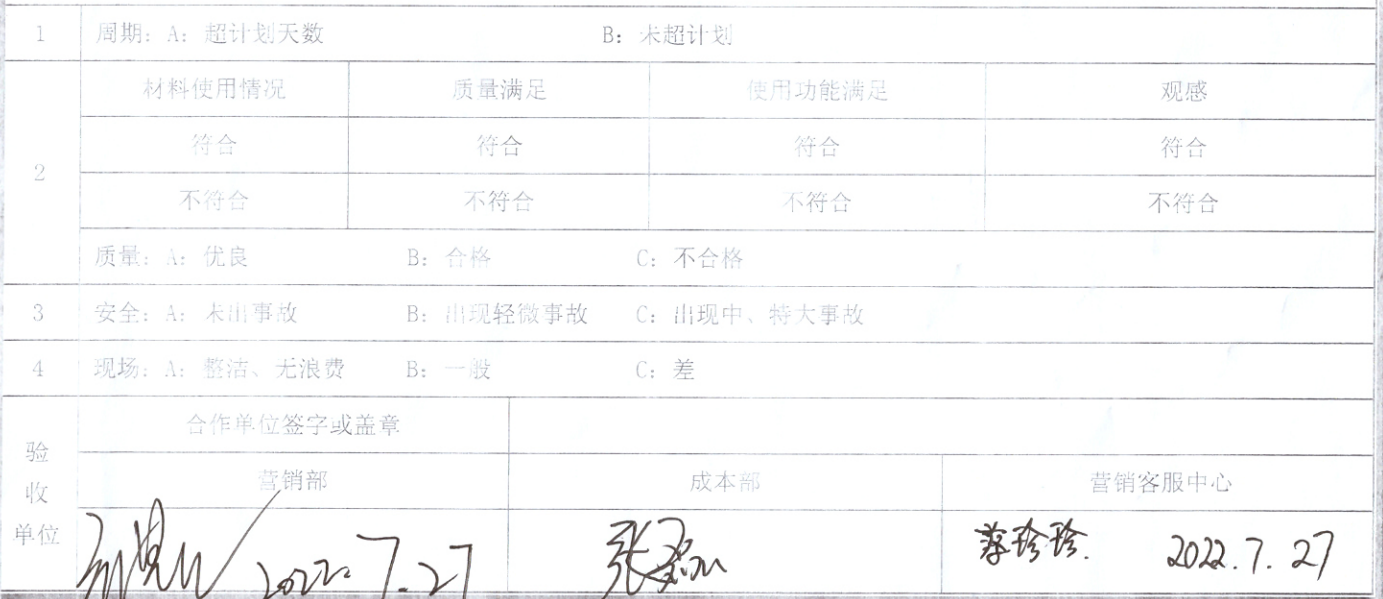 1 周期：A：超计划天数 B：未超计划
材料使用情况 质量满足 使用功能满足 观感
符合 符合 符合 符合
2
不符合 不符合 不符合 不符合
质量：A：优良 B：合格 C：不合格
3 安全：A：未出事故 B：出现轻微事故 C：出现中、特大事故
4 现场：A：整洁、无浪费 B：一般 C：差
验收单位
合作单位签字或盖章
营销部 成本部 营销客服中心
2022.7.27 张 珍珍. 2022.7.27